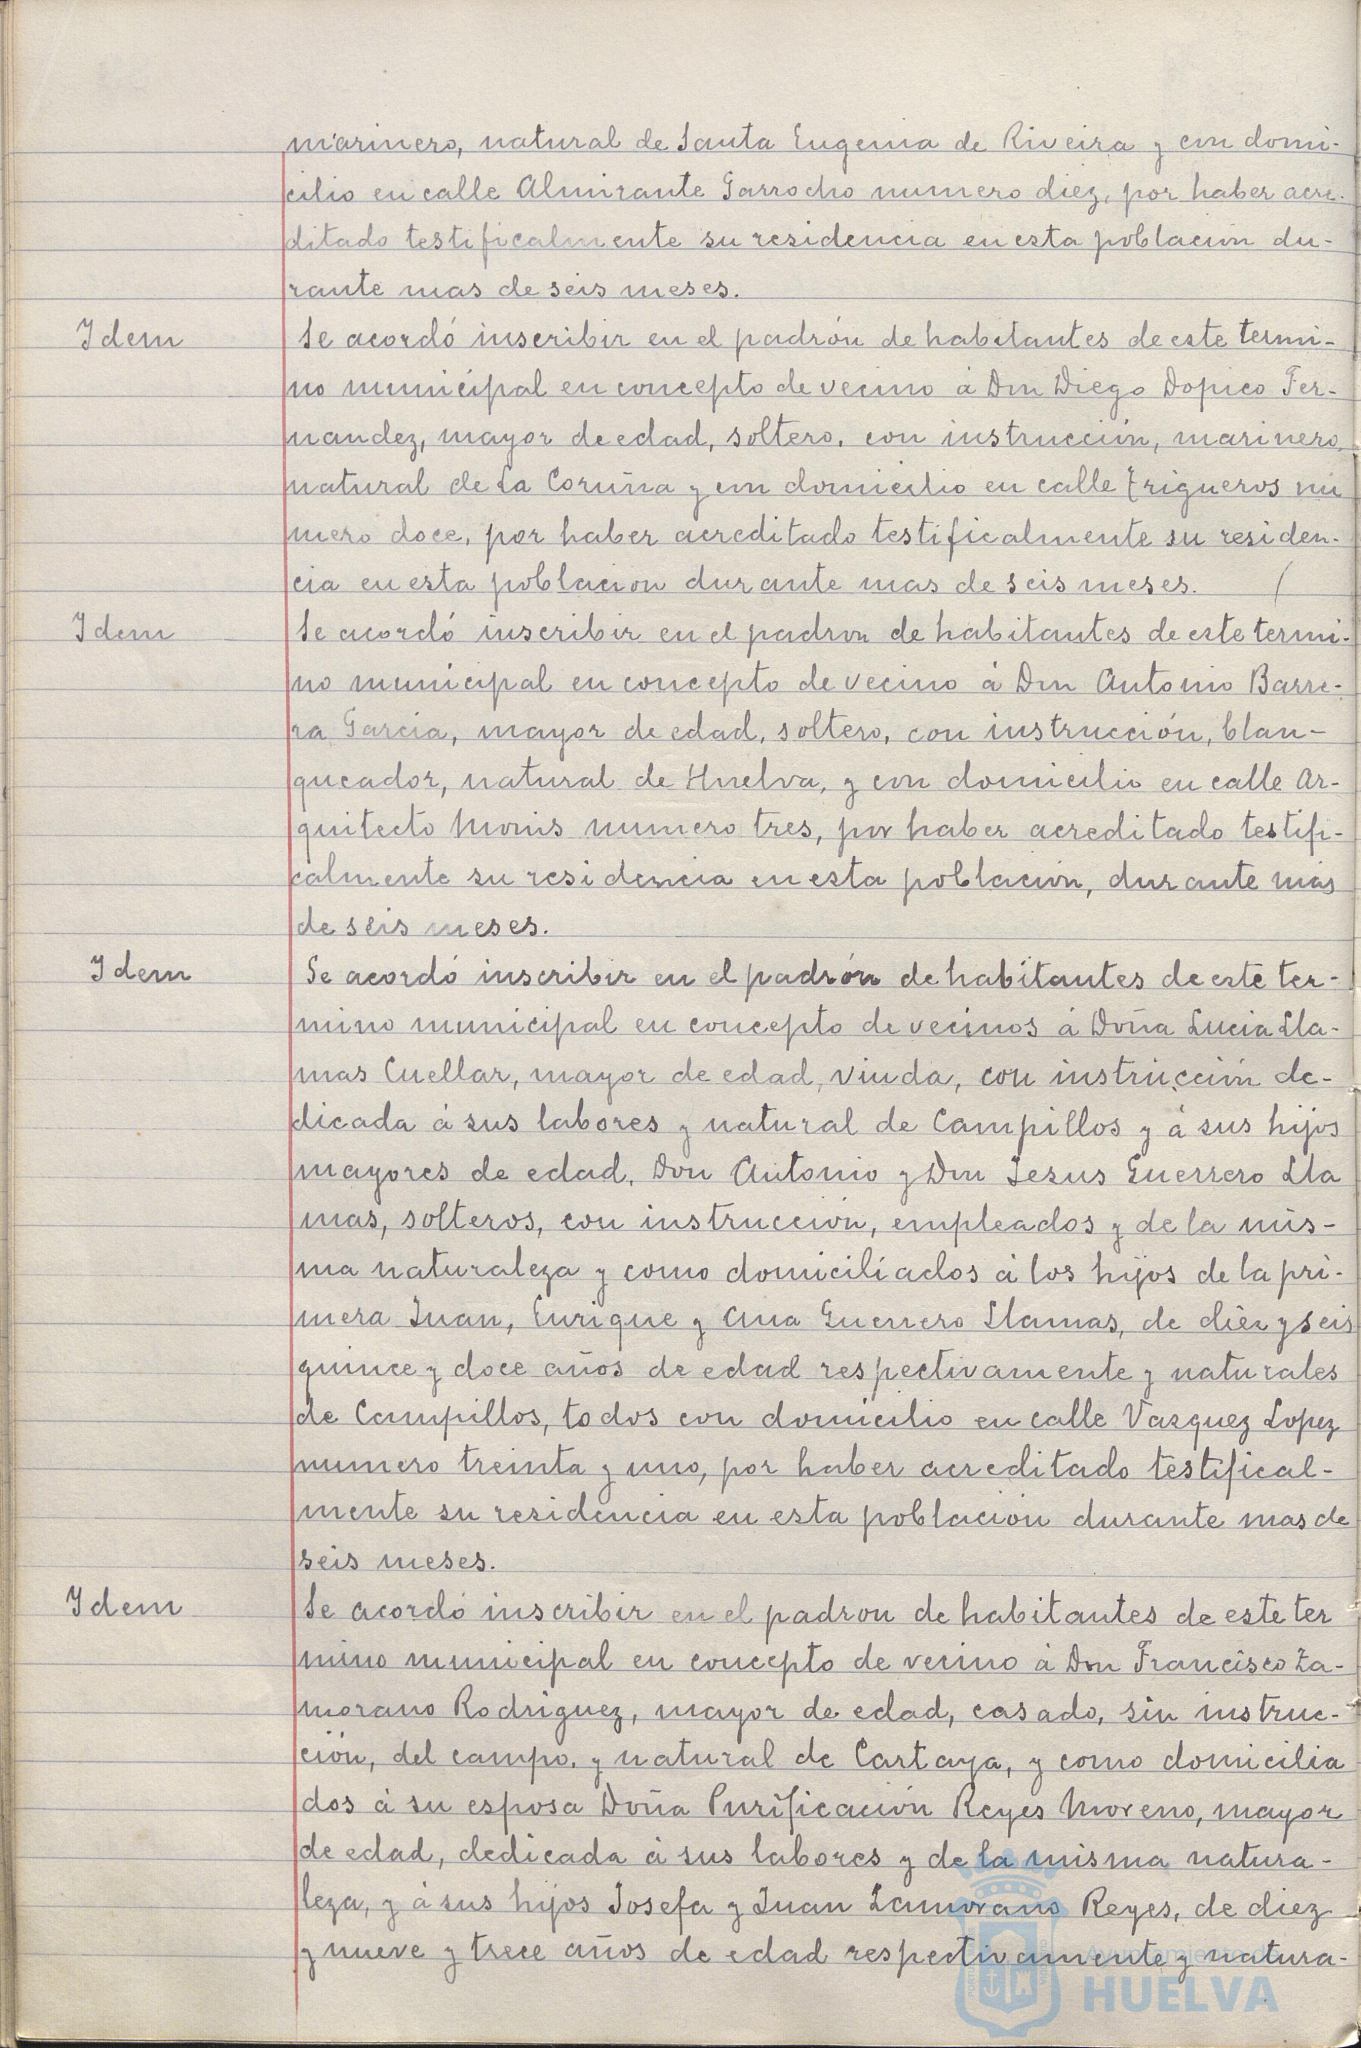 marinero, natural de Santa Eugenia de Riveira y con domi-
cilio en calle Almirante Garrocho numero diez, por haber acre-
ditado testificalmente su residencia en esta poblacion du-
rante mas de seis meses.
Idem
Se acordó inscribir en el padrón de habitantes de este termi-
no municipal en concepto de vecino á Don Diego Dopico Fer-
nandez, mayor de edad, soltero, con instrucción, marinero,
natural de La Coruña y con domicilio en calle Trigueros nu
mero doce, por haber acreditado testificalmente su residen-
cia en esta poblacion durante mas de seis meses.
Idem
Se acordó inscribir en el padron de habitantes de este termi-
no municipal en concepto de vecino á Don Antonio Barre-
ra Garcia, mayor de edad, soltero, con instrucción, blan-
queador, natural de Huelva, y con domicilio en calle Ar-
quitecto Monis numero tres, por haber acreditado testifi-
calmente su residencia en esta poblacion, durante mas
de seis meses.
Idem
Se acordó inscribir en el padrón de habitantes de este ter-
mino municipal en concepto de vecinos á Doña Lucia Lla-
mas Cuellar, mayor de edad, viuda, con instrucción de-
dicada á sus labores y natural de Campillos y á sus hijos
mayores de edad, Don Antonio y Don Jesus Guerrero Lla
mas, solteros, con instruccion, empleados y de la mis-
ma naturaleza y como domiciliados á los hijos de la pri-
mera Juan, Enrique y Ana Guerrero Llamas, de diez y seis
quince y doce años de edad respectivamente y naturales
de Campillos, todos con domicilio en calle Vazquez Lopez
numero treinta y uno, por haber acreditado testifical-
mente su residencia en esta poblacion durante mas de
seis meses.
Idem
Se acordó inscribir en el padron de habitantes de este ter
mino municipal en concepto de vecino á Don Francisco Za-
morano Rodriguez, mayor de edad, casado, sin instruc-
ción, del campo, y natural de Cartaya, y como domicilia
dos á su esposa Doña Purificación Reyes Moreno, mayor
de edad, dedicada á sus labores y de la misma natura-
leza, y á sus hijos Josefa y Juan Zamorano Reyes, de diez
y nueve y trece años de edad respectivamente y natura-
Ayuntamiento de
HUELVA